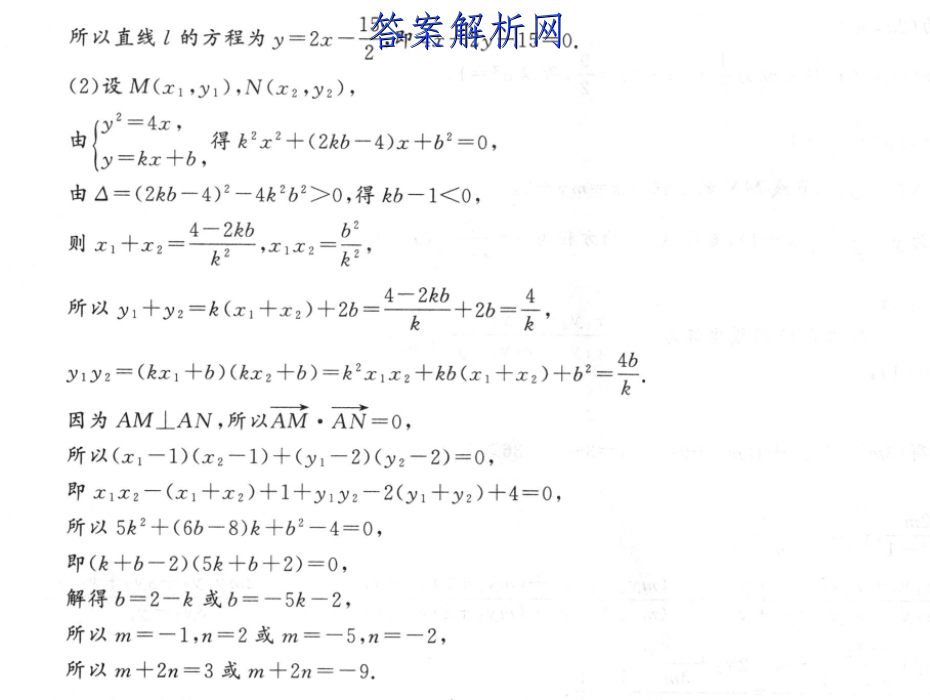 所以直线 l 的方程为 y=2x-15/2,即 y-15=0.
答案解析网
(2)设 M(x₁,y₁),N(x₂,y₂),
由{y²=4x, y=kx+b, 得 k²x²+(2kb-4)x+b²=0,
由 Δ=(2kb-4)²-4k²b²>0,得 kb-1<0,
则 x₁+x₂=(4-2kb)/k²,x₁x₂=b²/k²,
所以 y₁+y₂=k(x₁+x₂)+2b=(4-2kb)/k+2b=4/k,
y₁y₂=(kx₁+b)(kx₂+b)=k²x₁x₂+kb(x₁+x₂)+b²=4b/k.
因为 AM⊥AN,所以AM·AN=0,
所以(x₁-1)(x₂-1)+(y₁-2)(y₂-2)=0,
即 x₁x₂-(x₁+x₂)+1+y₁y₂-2(y₁+y₂)+4=0,
所以 5k²+(6b-8)k+b²-4=0,
即(k+b-2)(5k+b+2)=0,
解得 b=2-k 或 b=-5k-2,
所以 m=-1,n=2 或 m=-5,n=-2,
所以 m+2n=3 或 m+2n=-9.